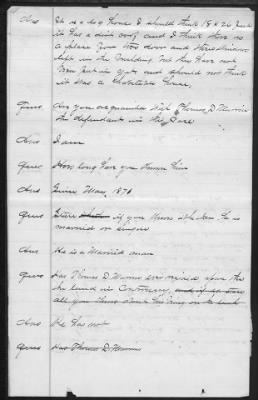 Ans It is a log house I should think 18 x 26 feet
it has a dirt roof, and I think there is
a place for two door and three windows
left in the building but they have not
been put in yet and should not think
it was a habitable house.
Ques Are you acquainted with Thomas D. Munroe
the defendant in this case
Ans I am
Ques How long have you known him
Ans Since May, 1878
Ques State if you know whether he is
married or single
Ans He is a married man
Ques Has Thomas D. Munroe ever resided upon the
the land in Controversy, and if so state
all you know about his living on the land
Ans He has not
Ques Has Thomas D. Munroe